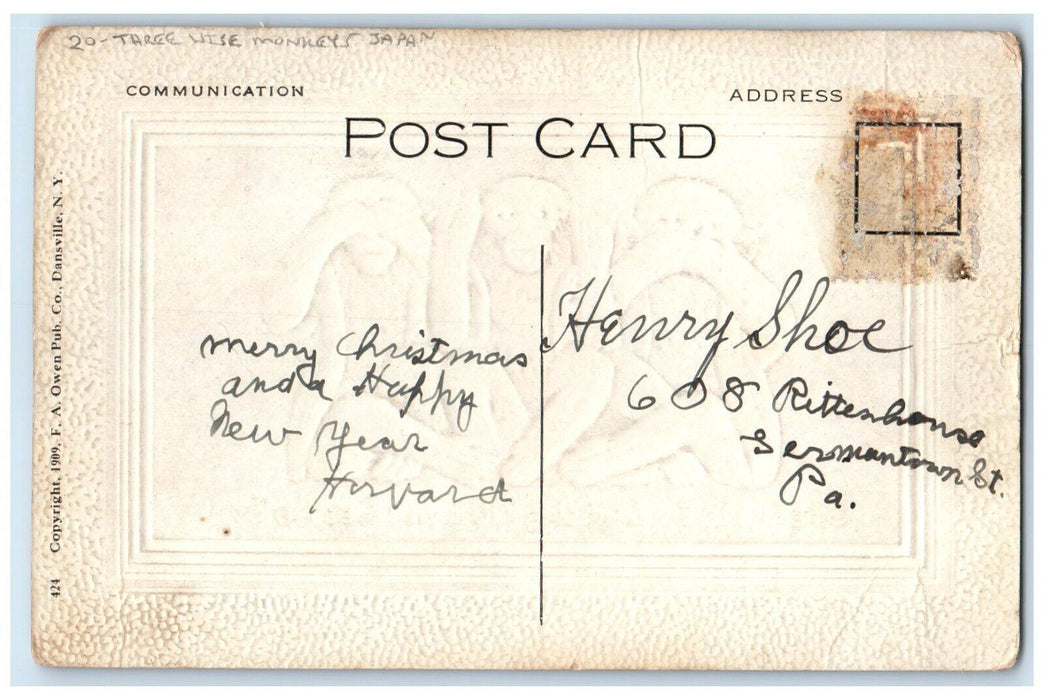 20- THREE WISE MONKEYS JAPAN
COMMUNICATION
ADDRESS
POST CARD
merry Christmas
and a Happy
New Year
Harvard
Henry Shoe
608 Rittenhouse
Germantown St.
Pa.
424 Copyright, 1909, F. A. Owen Pub. Co., Dansville, N. Y.